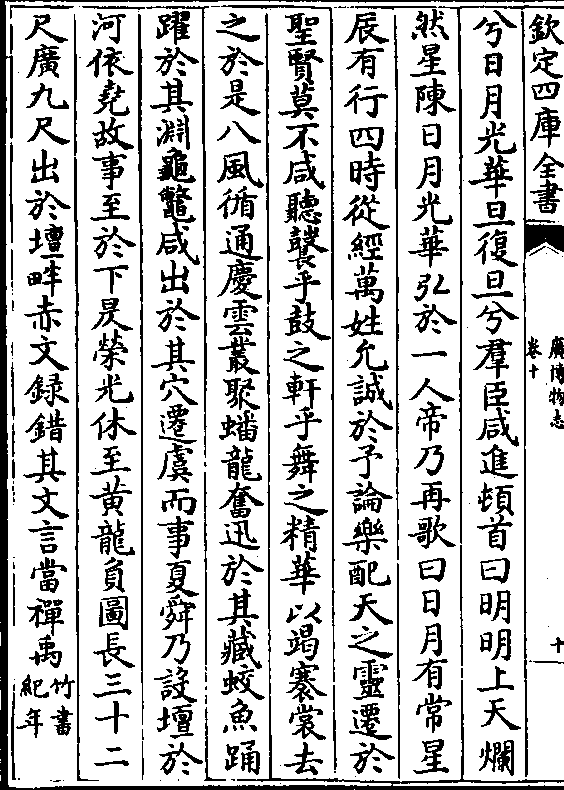 欽定四庫全書
廣博物志
卷十
十
兮日月光華旦復旦兮羣臣咸進頓首曰明明上天爛
然星陳日月光華弘於一人帝乃再歌曰日月有常星
辰有行四時從經萬姓允誠於予論樂配天之靈遷於
聖賢莫不咸聽鼚乎鼓之軒乎舞之精華以竭褰裳去
之於是八風循通慶雲叢聚蟠龍奮迅於其藏蛟魚踊
躍於其淵龜鼈咸出於其穴遷虞而事夏舜乃設壇於
河依堯故事至於下昃榮光休至黃龍負圖長三十二
尺廣九尺出於壇畔赤文錄錯其文言當禪禹竹書
紀年